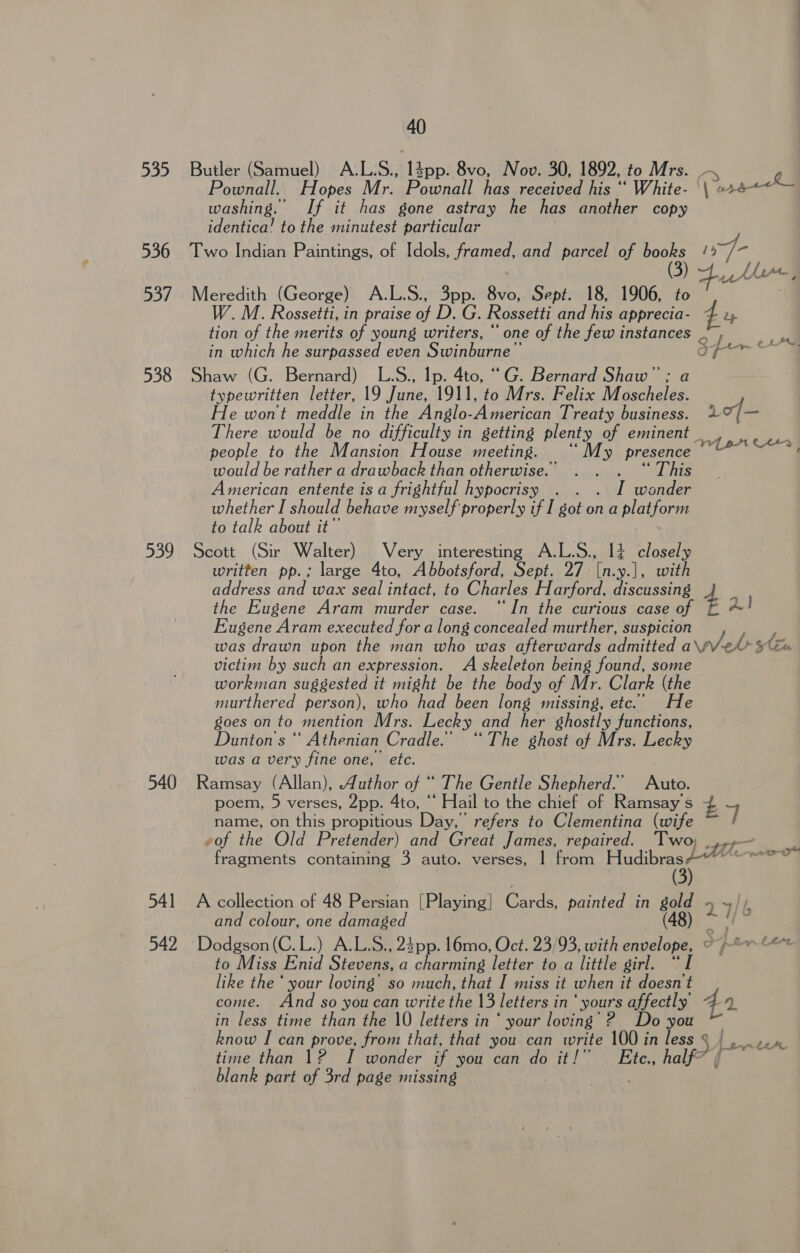 40
535 Butler (Samuel) A.L.S., 1½pp. 8vo, Nov. 30, 1892, to Mrs.
Pownall. Hopes Mr. Pownall has received his “White-
washing.” If it has gone astray he has another copy
identical to the minutest particular
536 Two Indian Paintings, of Idols, framed, and parcel of books 15/-
(3)
537 Meredith (George) A.L.S., 3pp. 8vo, Sept. 18, 1906, to
W. M. Rossetti, in praise of D. G. Rossetti and his apprecia-
tion of the merits of young writers, “one of the few instances
in which he surpassed even Swinburne”
538 Shaw (G. Bernard) L.S., 1p. 4to, “G. Bernard Shaw”; a
typewritten letter, 19 June, 1911, to Mrs. Felix Moscheles.
He won't meddle in the Anglo-American Treaty business. 20/-
There would be no difficulty in getting plenty of eminent
people to the Mansion House meeting. “My presence
would be rather a drawback than otherwise.” . . . “This
American entente is a frightful hypocrisy . . . I wonder
whether I should behave myself properly if I got on a platform
to talk about it”
539 Scott (Sir Walter) Very interesting A.L.S., 1¾ closely
written pp.; large 4to, Abbotsford, Sept. 27 [n.y.], with
address and wax seal intact, to Charles Harford, discussing
the Eugene Aram murder case. “In the curious case of £21
Eugene Aram executed for a long concealed murther, suspicion
was drawn upon the man who was afterwards admitted a
victim by such an expression. A skeleton being found, some
workman suggested it might be the body of Mr. Clark (the
murthered person), who had been long missing, etc.” He
goes on to mention Mrs. Lecky and her ghostly functions,
Dunton's “Athenian Cradle.” “The ghost of Mrs. Lecky
was a very fine one,” etc.
540 Ramsay (Allan), Author of “The Gentle Shepherd.” Auto.
poem, 5 verses, 2pp. 4to, “Hail to the chief of Ramsay's
name, on this propitious Day,” refers to Clementina (wife
of the Old Pretender) and Great James, repaired. Two
fragments containing 3 auto. verses, 1 from Hudibras
(3)
541 A collection of 48 Persian [Playing] Cards, painted in gold
and colour, one damaged (48)
542 Dodgson (C. L.) A.L.S., 2½pp. 16mo, Oct. 23/93, with envelope,
to Miss Enid Stevens, a charming letter to a little girl. “I
like the ‘your loving’ so much, that I miss it when it doesn't
come. And so you can write the 13 letters in ‘yours affectly’
in less time than the 10 letters in ‘your loving’? Do you
know I can prove, from that, that you can write 100 in less
time than 1? I wonder if you can do it!” Etc., half
blank part of 3rd page missing